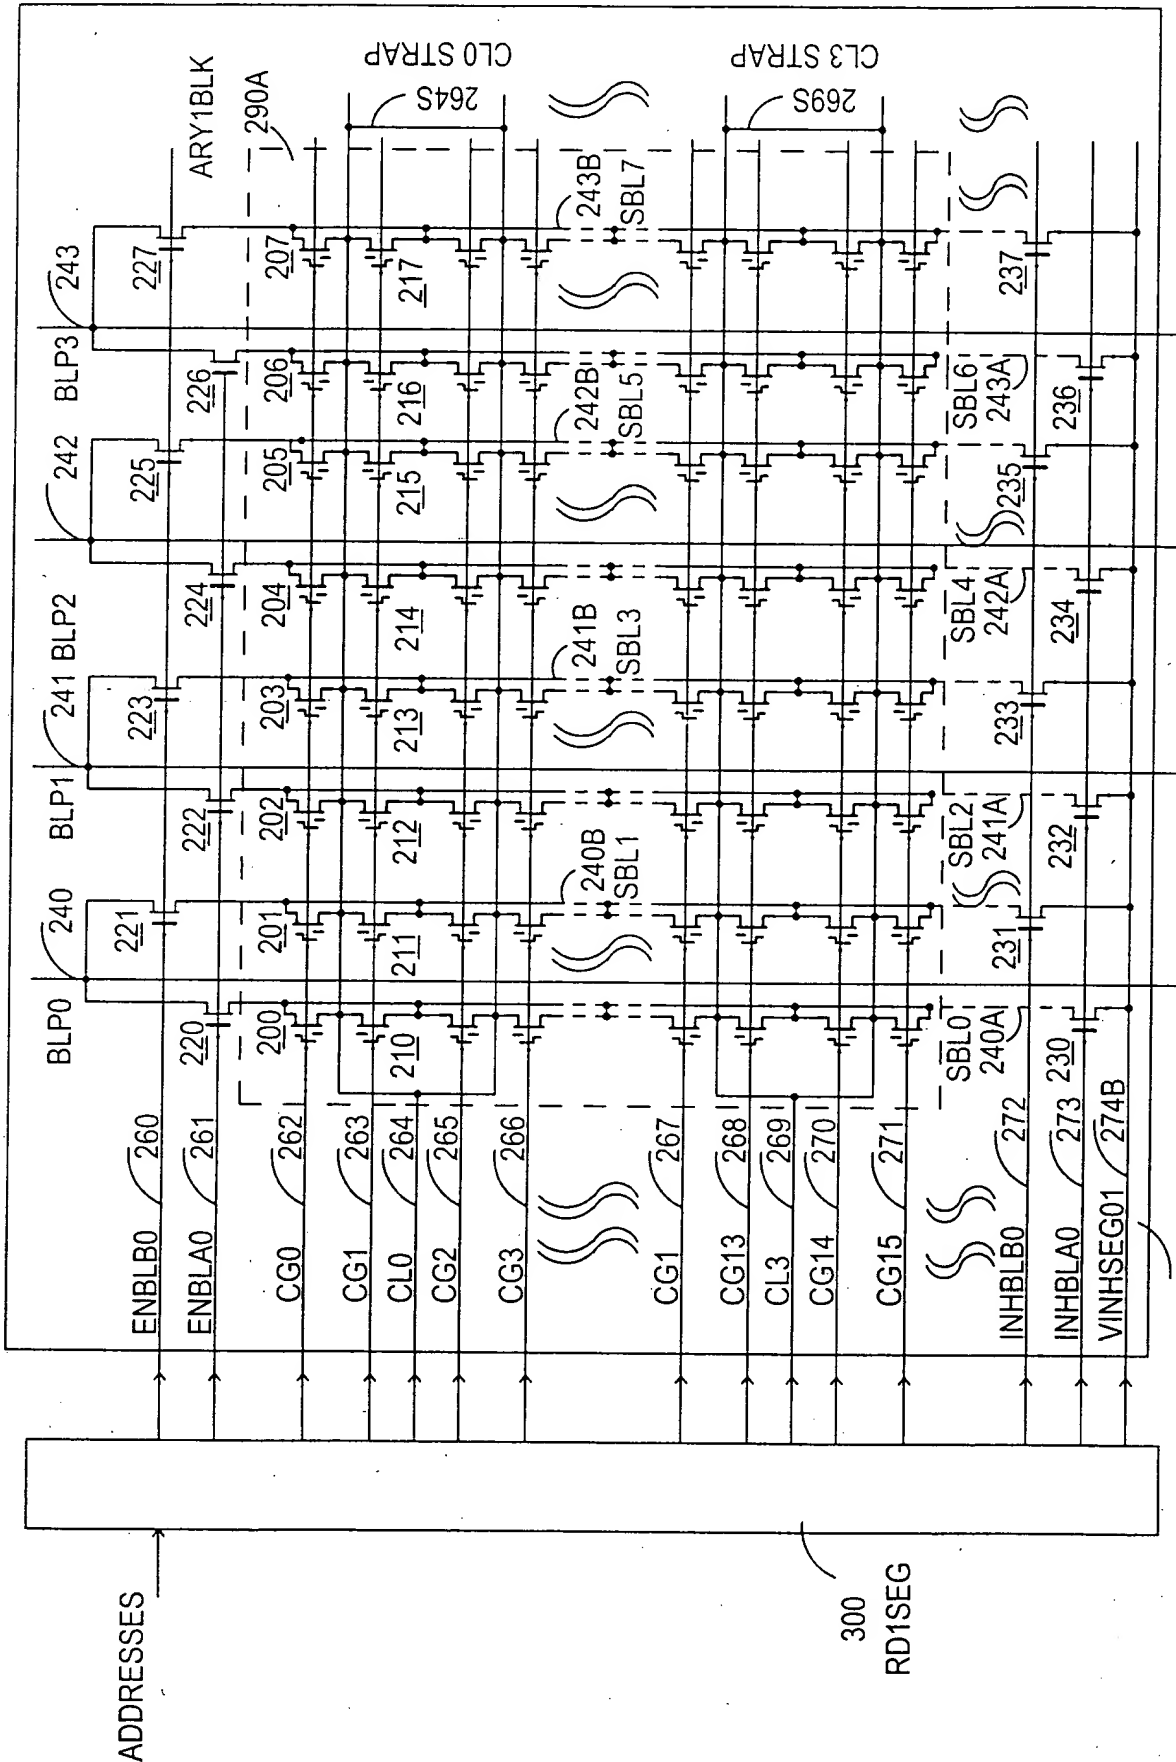 ADDRESSES
300
RD1SEG
ENBLB0 260
ENBLA0 261
CG0 262
CG1 263
CL0 264
CG2 265
CG3 266
CG1 267
CG13 268
CL3 269
CG14 270
CG15 271
INHBLB0 272
INHBLA0 273
VINHSEG01 274B
BLP0 240
BLP1 241
BLP2 242
BLP3 243
220 221 222 223 224 225 226 227
ARY1BLK
290A
200 201 202 203 204 205 206 207
210 211 212 213 214 215 216 217
264S
CL0 STRAP
240B
SBL1
241B
SBL3
242B
SBL5
243B
SBL7
269S
CL3 STRAP
SBL0
240A
SBL2
241A
SBL4
242A
SBL6
243A
230 231 232 233 234 235 236 237